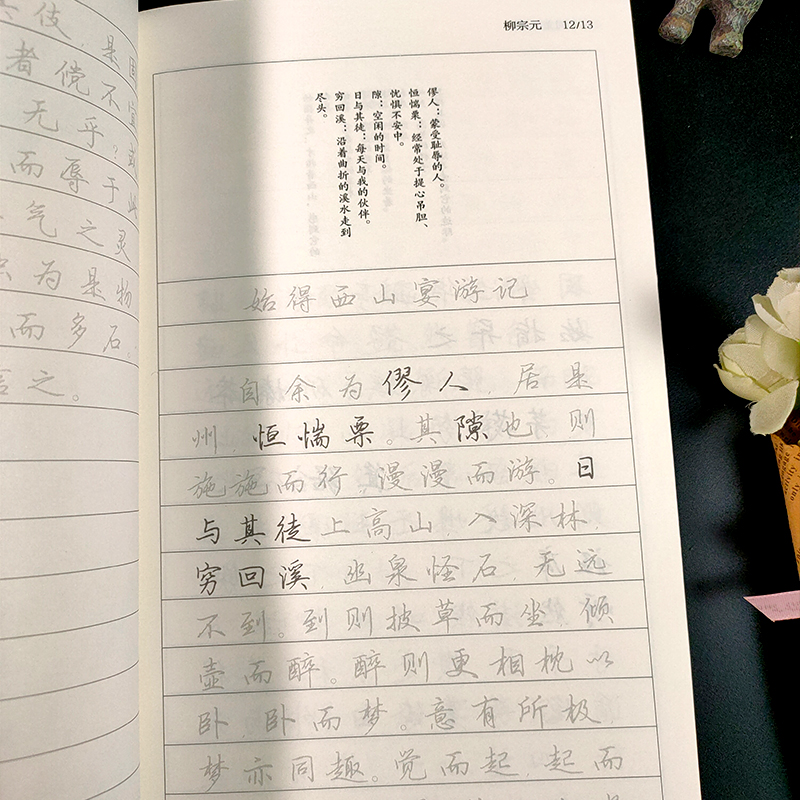 伎，是固
者傥不宜
无乎？或
而辱于此
气之灵
为是物
而多石。
之。
柳宗元 12/13
僇人：蒙受耻辱的人。
恒惴栗：经常处于提心吊胆、
忧惧不安中。
隙：空闲的时间。
日与其徒：每天与我的伙伴。
穷回溪：沿着曲折的溪水走到
尽头。
始得西山宴游记
自余为僇人，居是
州，恒惴栗。其隙也，则
施施而行，漫漫而游。日
与其徒上高山，入深林，
穷回溪，幽泉怪石，无远
不到。到则披草而坐，倾
壶而醉。醉则更相枕以
卧，卧而梦。意有所极，
梦亦同趣。觉而起，起而